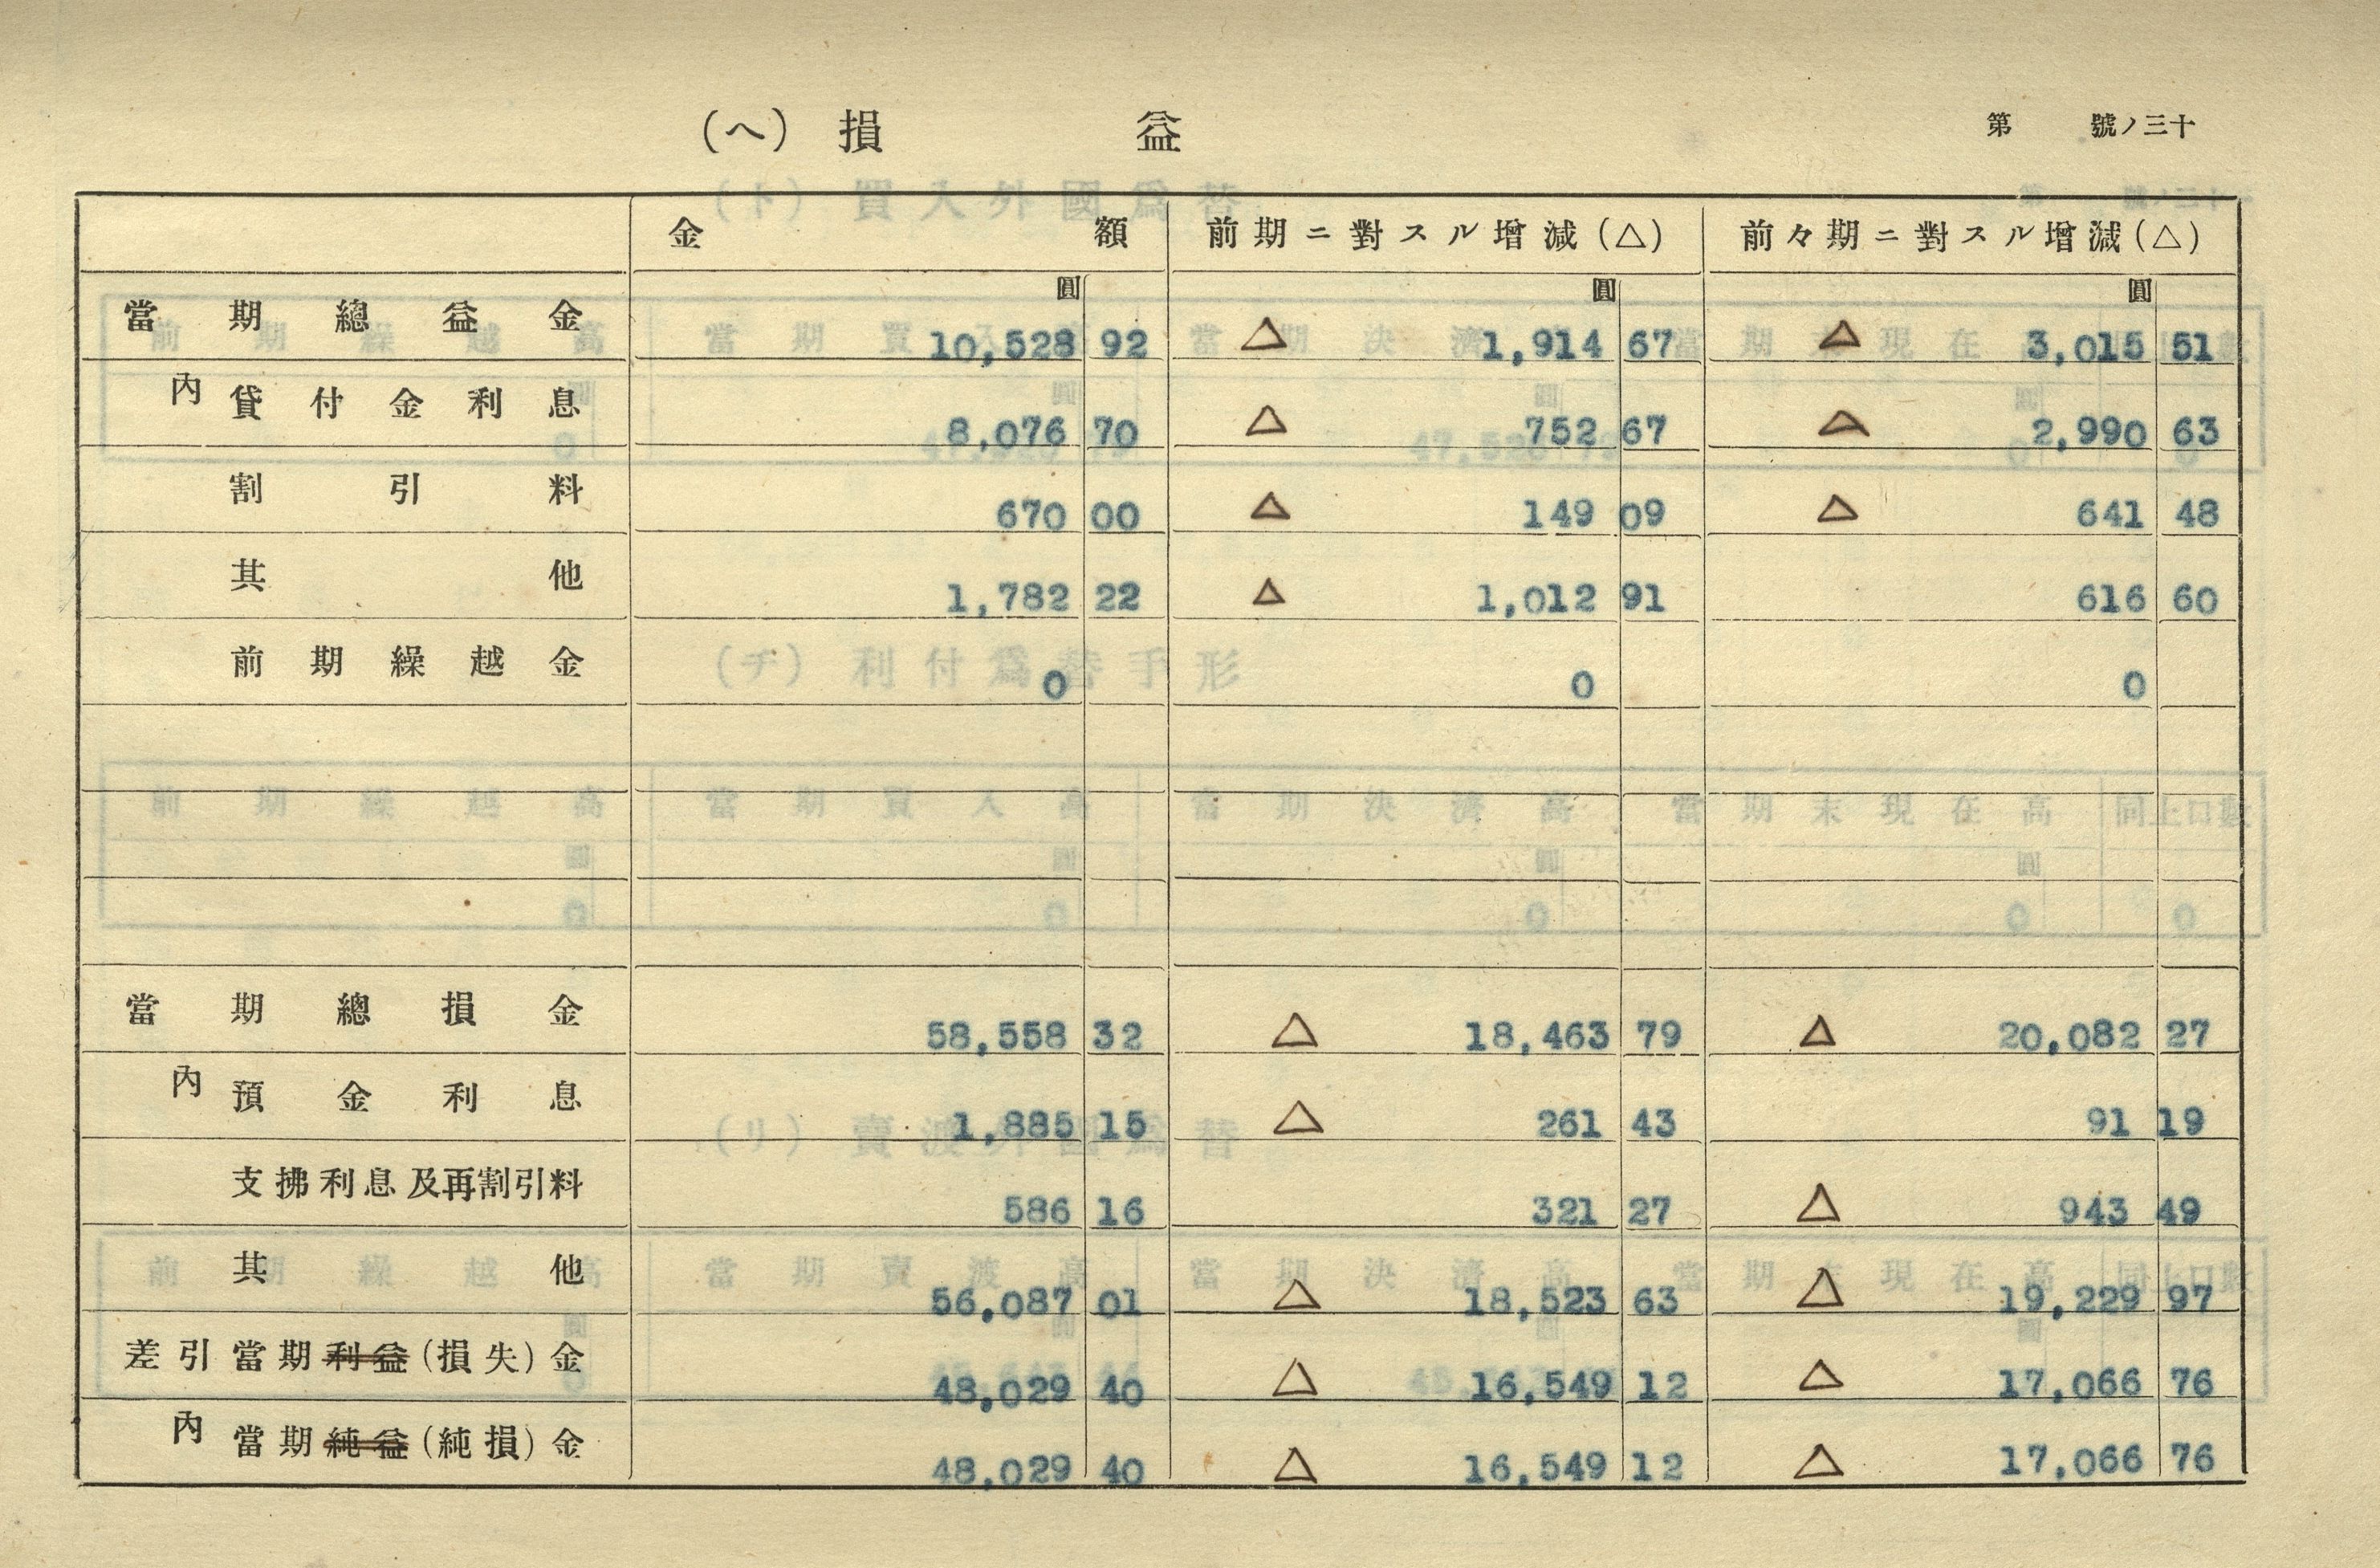 (ヘ) 損益 第 號ノ三十
金額 前期ニ對スル增減(△) 前々期ニ對スル增減(△)
圓 圓 圓
當期總益金 10,528 92 △ 1,914 67 △ 3,015 51
內 貸付金利息 8,076 70 △ 752 67 △ 2,990 63
割引料 670 00 △ 149 09 △ 641 48
其他 1,782 22 △ 1,012 91 616 60
前期繰越金 0 0 0
當期總損金 58,558 32 △ 18,463 79 △ 20,082 27
內 預金利息 1,885 15 △ 261 43 91 19
支拂利息及再割引料 586 16 321 27 △ 943 49
其他 56,087 01 △ 18,523 63 △ 19,229 97
差引當期利益(損失)金 48,029 40 △ 16,549 12 △ 17,066 76
內 當期純益(純損)金 48,029 40 △ 16,549 12 △ 17,066 76